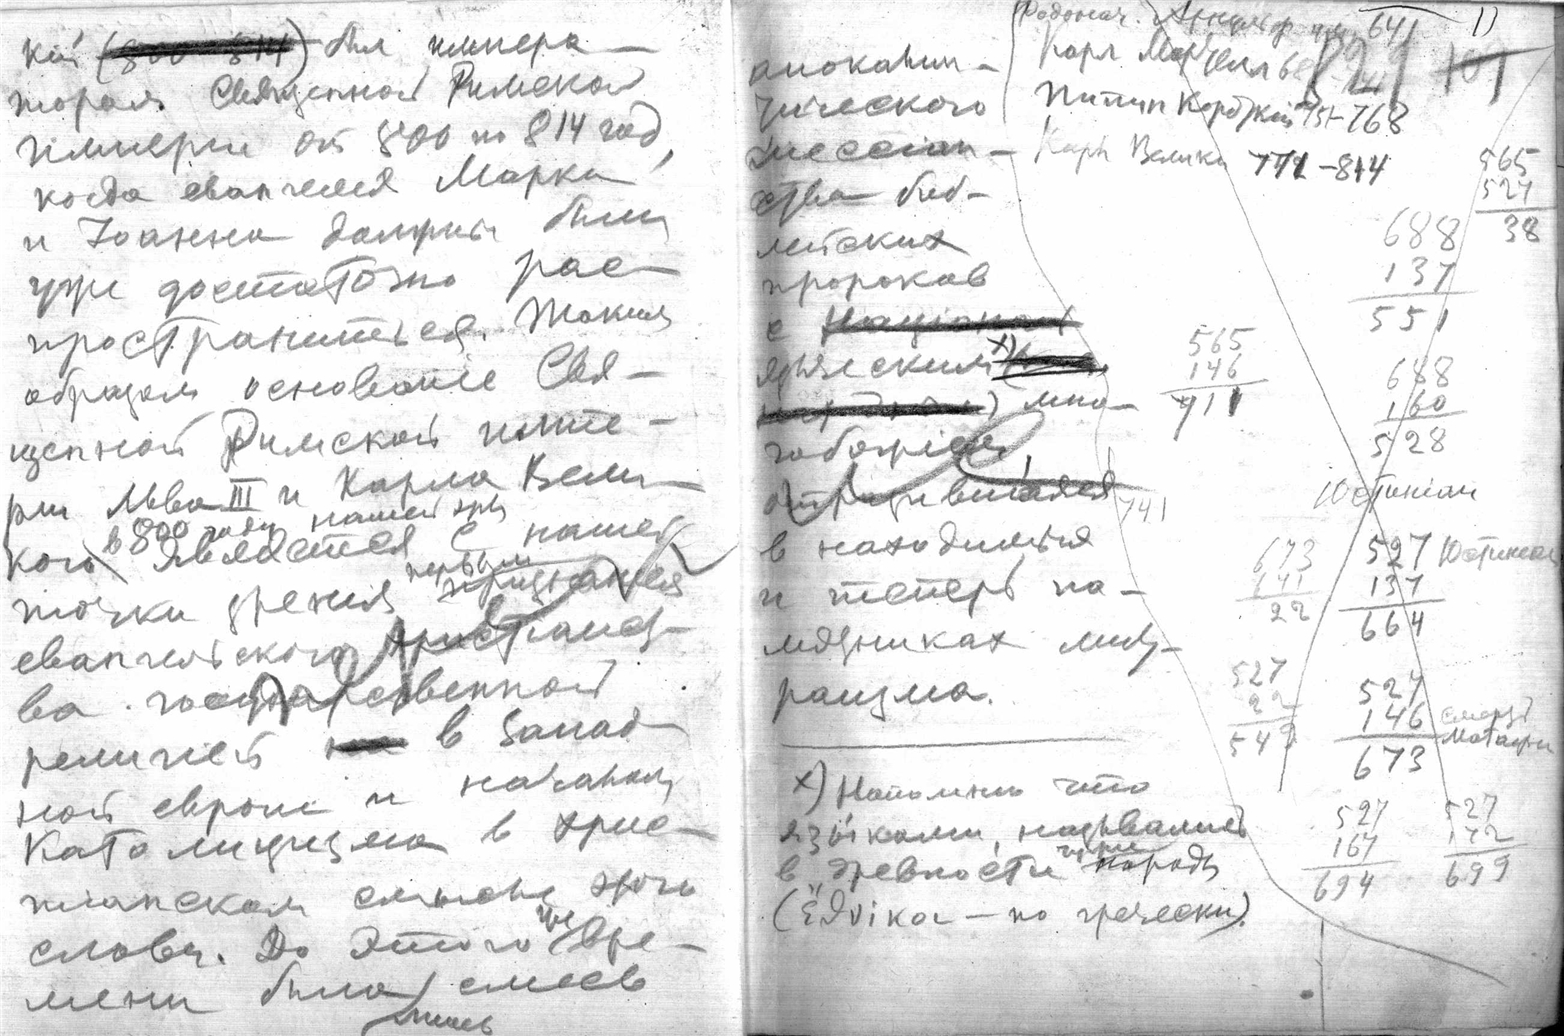 кий (800-814) был импера-
тором Священной Римской
империи от 800 по 814 год,
когда евангелия Марка
и Иоанна должны были
уже достаточно рас-
пространиться. Таким
образом основание Свя-
щенной Римской импе-
рии Львом III и Карла Вели-
кого в 800 году нашей эры является с нашей
точки зрения первым признанием
евангельского христианст-
ва государственной
религией в Запад-
ной Европе и началом
Католицизма в хрис-
тианском смысле этого
слова. До этого же вре-
мени была смесь
лишь
апокалип-
тического
мессиан-
ства биб-
лейских
пророков
с
языческим х)
мно-
гобожием
отразившаяся
в находимых
и теперь па-
мятниках мит-
раизма.
х) Напомню что
языками назывались
в древности чужие народы
(ἔθνικοι — по гречески).
Родонач. 641 11
Карл Мартелл
Пипин Короткий 751-768
Карл Велики 771-814
565
527
38
688
137
551
565
146
711
688
160
528
Юстиниан
741
673
141
22
527 Юстиниан
137
664
527
22
549
527
146
673
527
167
694
527
172
699